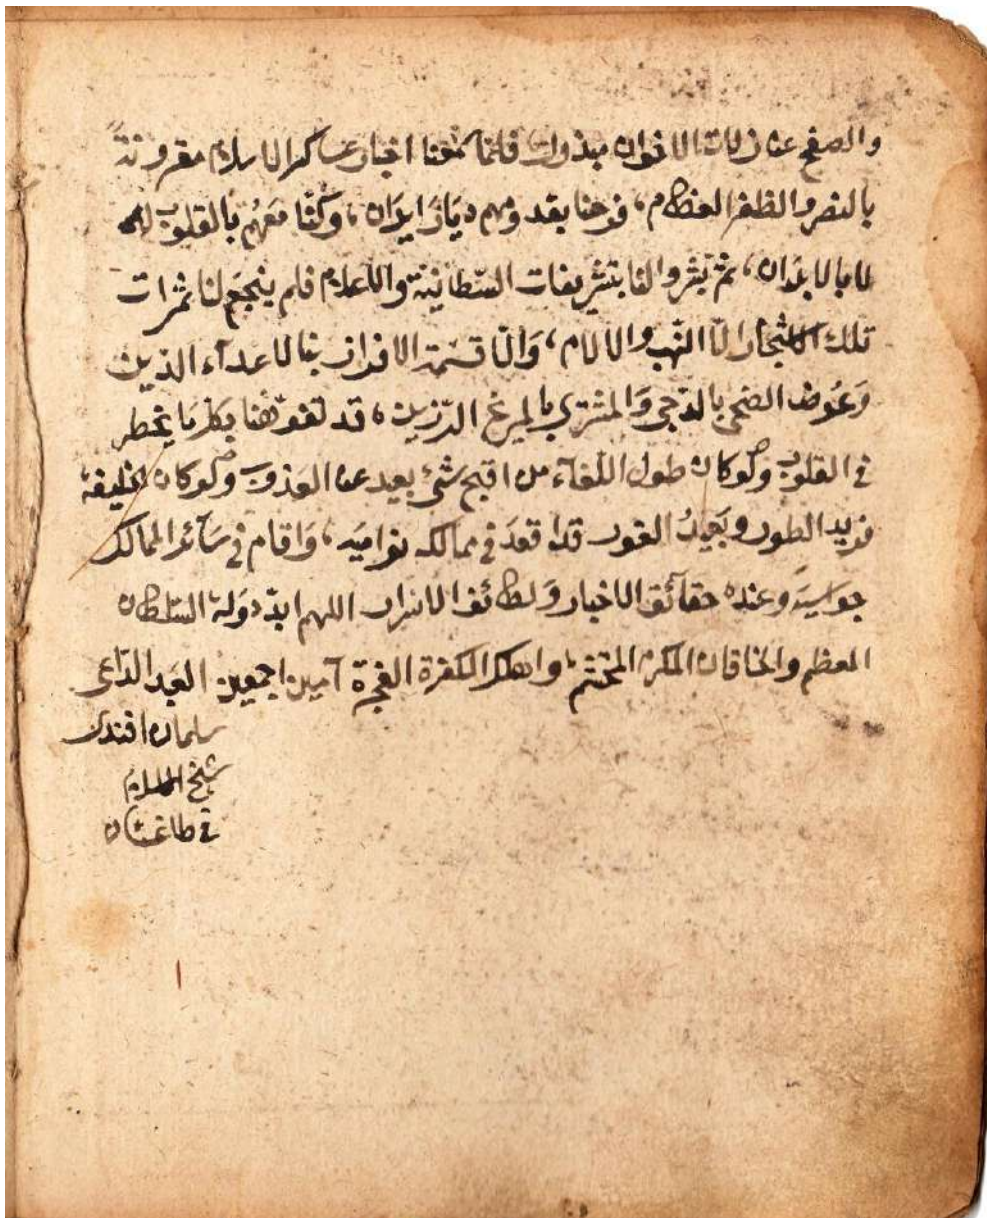 والصفح عن زلات الاخوان مبذولة فلما سمعنا اخبار عساكر الاسلام مقرونة
بالنصر والظفر العظام، فرحنا بقدومهم ديار ايران، وكنا معهم بالقلوب
لا بالابدان، ثم بشروا لنا بتشريفات السلطانية والاعلام فلم ينجع لنا ثمرات
تلك الاشجار الا النهب والالام، والا قسمة الافراز بنا لاعداء الذين
وعوض الضحى بالدجى والمشترى بالمريخ الدرزين، قد تفوهنا بكل ما يخطر
في القلوب ولو كان طول اللغاء من اقبح شئ بعيد عن العذوب ولو كان خليفة
فريد الطور وبعيد الغور قد اقعد في ممالكه نواميه، واقام في سائر الممالك
جواسيسه وعنده حقائق الاخبار ولطائف الاسرار اللهم ابد دولة السلطان
المعظم والخاقان المكرم المحتشم، واهلك الكفرة الفجرة آمين اجمعين العبد الداعى
سلمان افندى
شيخ الاسلام
في طاغستان